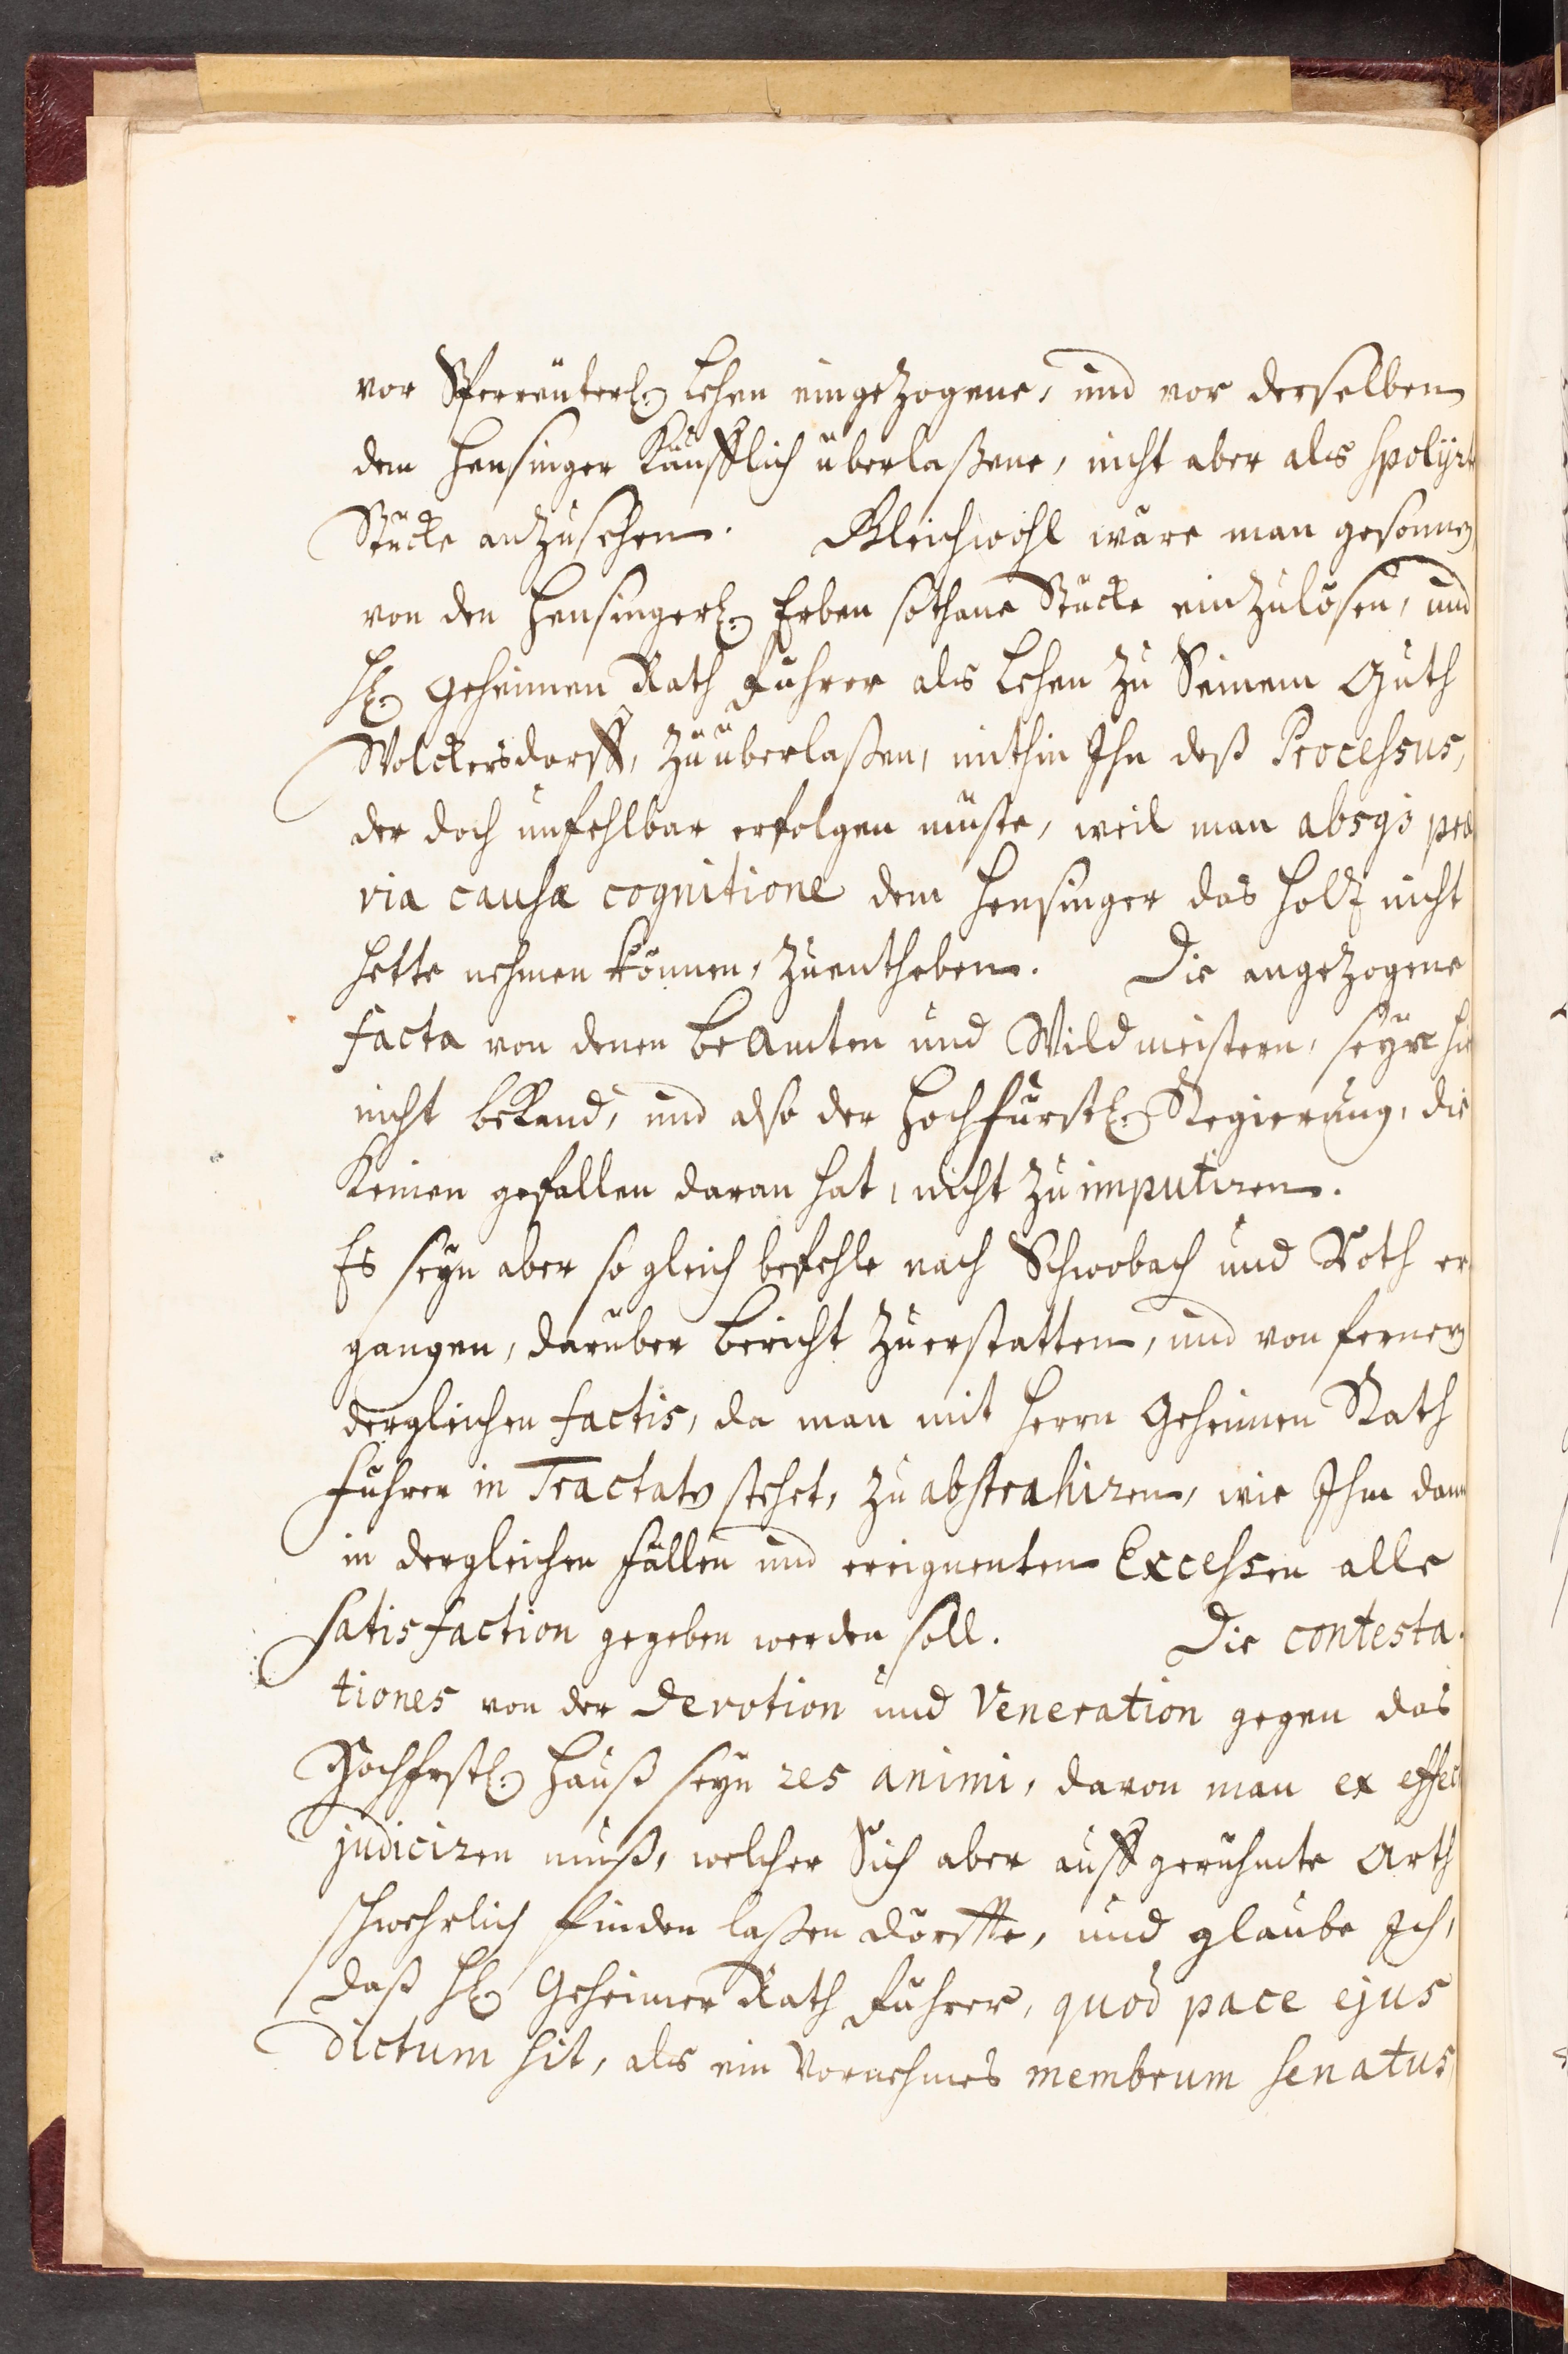 vor Sperreüterl. Lehen eingezogene, und vor derselben
dem Hensinger Käufflich überlaßene, nicht aber als spolyrte
Stücke anzusehen. Gleichwohl wäre man gesonnen
von den Hensingerl. Erben sothane Stücke einzulösen, und
H. Geheimen Rath Führer als Lehen zu Seinem Guth
Wolckersdorff, zuüberlaßen, mithin Ihn deß Processus,
der doch unfehlbar erfolgen müste, weil man absq3 præ
via causæ cognitione dem Hensinger das Holtz nicht
hette nehmen können, zuentheben. Die angezogene
facta von denen Beamten und Wildmeistern, seyn hie
nicht bekand, und also der Hochfürstl. Regierung, die
Keinen gefallen daran hat, nicht zu imputiren.
Es seyn aber so gleich befehle nach Schwobach und Roth er
gangen, darüber Bericht zuerstatten, und von fernern
dergleichen factis, da man mit Herrn Geheimen Rath
Führer in Tractatu stehet, zu abstrahiren, wie Ihm dann
in dergleichen fällen und ereigneten Excessen alle
satisfaction gegeben werden soll. Die contesta-
tiones von der Devotion und Veneration gegen das
Hochfrstl. Hauß seyn res animi, davon man ex effec
judiciren muß, welcher Sich aber auff gerühmte Arth
schwehrlich finden laßen dörffte, und glaube Ich,
daß H. Geheimer Rath Führer, quod pace ejus
dictum sit, als ein Vornehmes membrum senatus